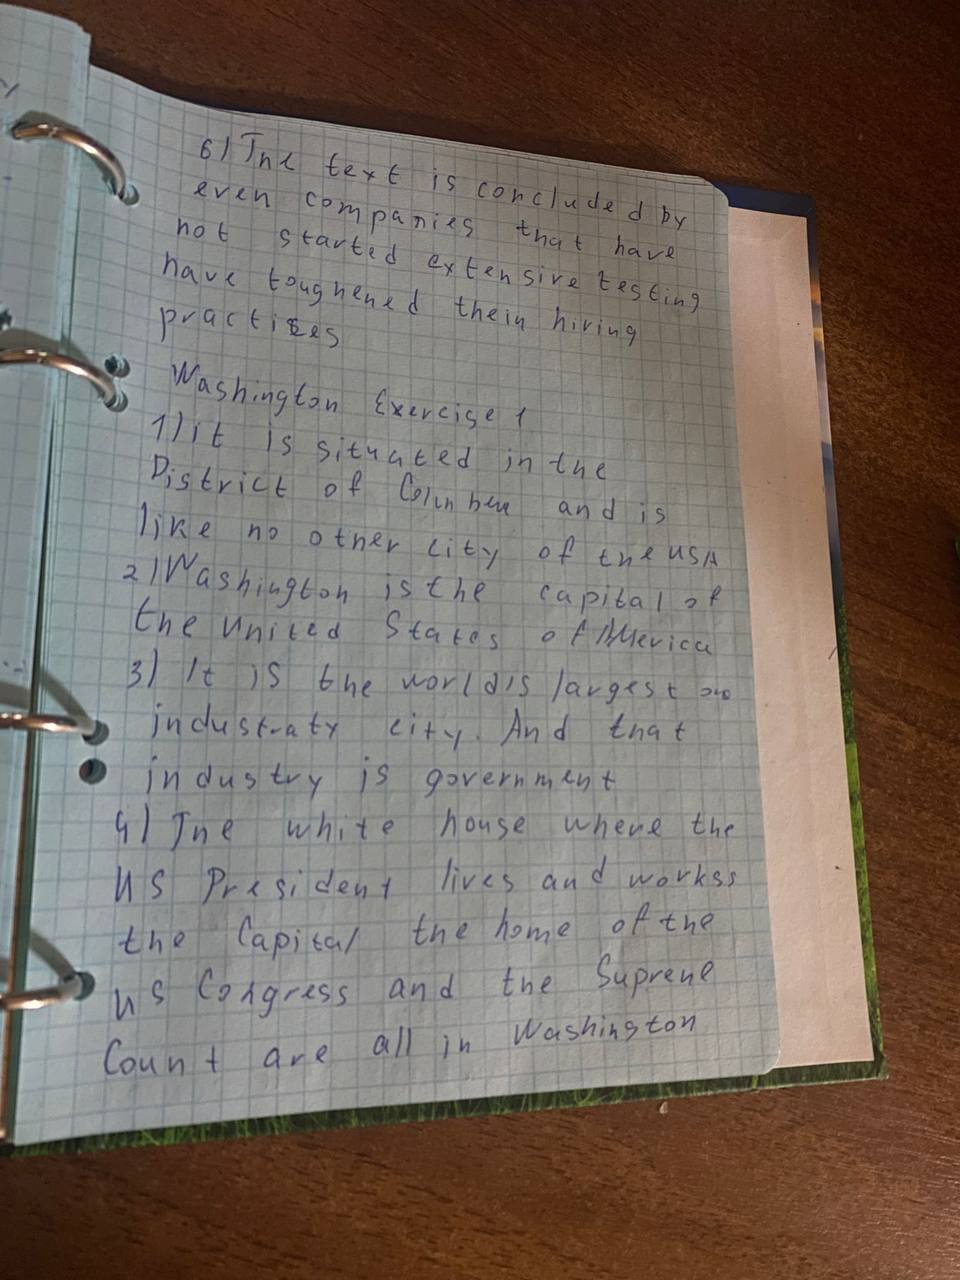 6) The text is concluded by
even companies that have
not started extensive testing
have toughened their hiring
practises
Washington Exercise 1
1) it is situated in the
District of Columbia and is
like no other city of the USA
2) Washington is the capital of
the United States of America
3) It is the world's largest
industraty city. And that
industry is government
4) The white house where the
US President lives and workss
the Capital the home of the
US Congress and the Supreme
Count are all in Washington